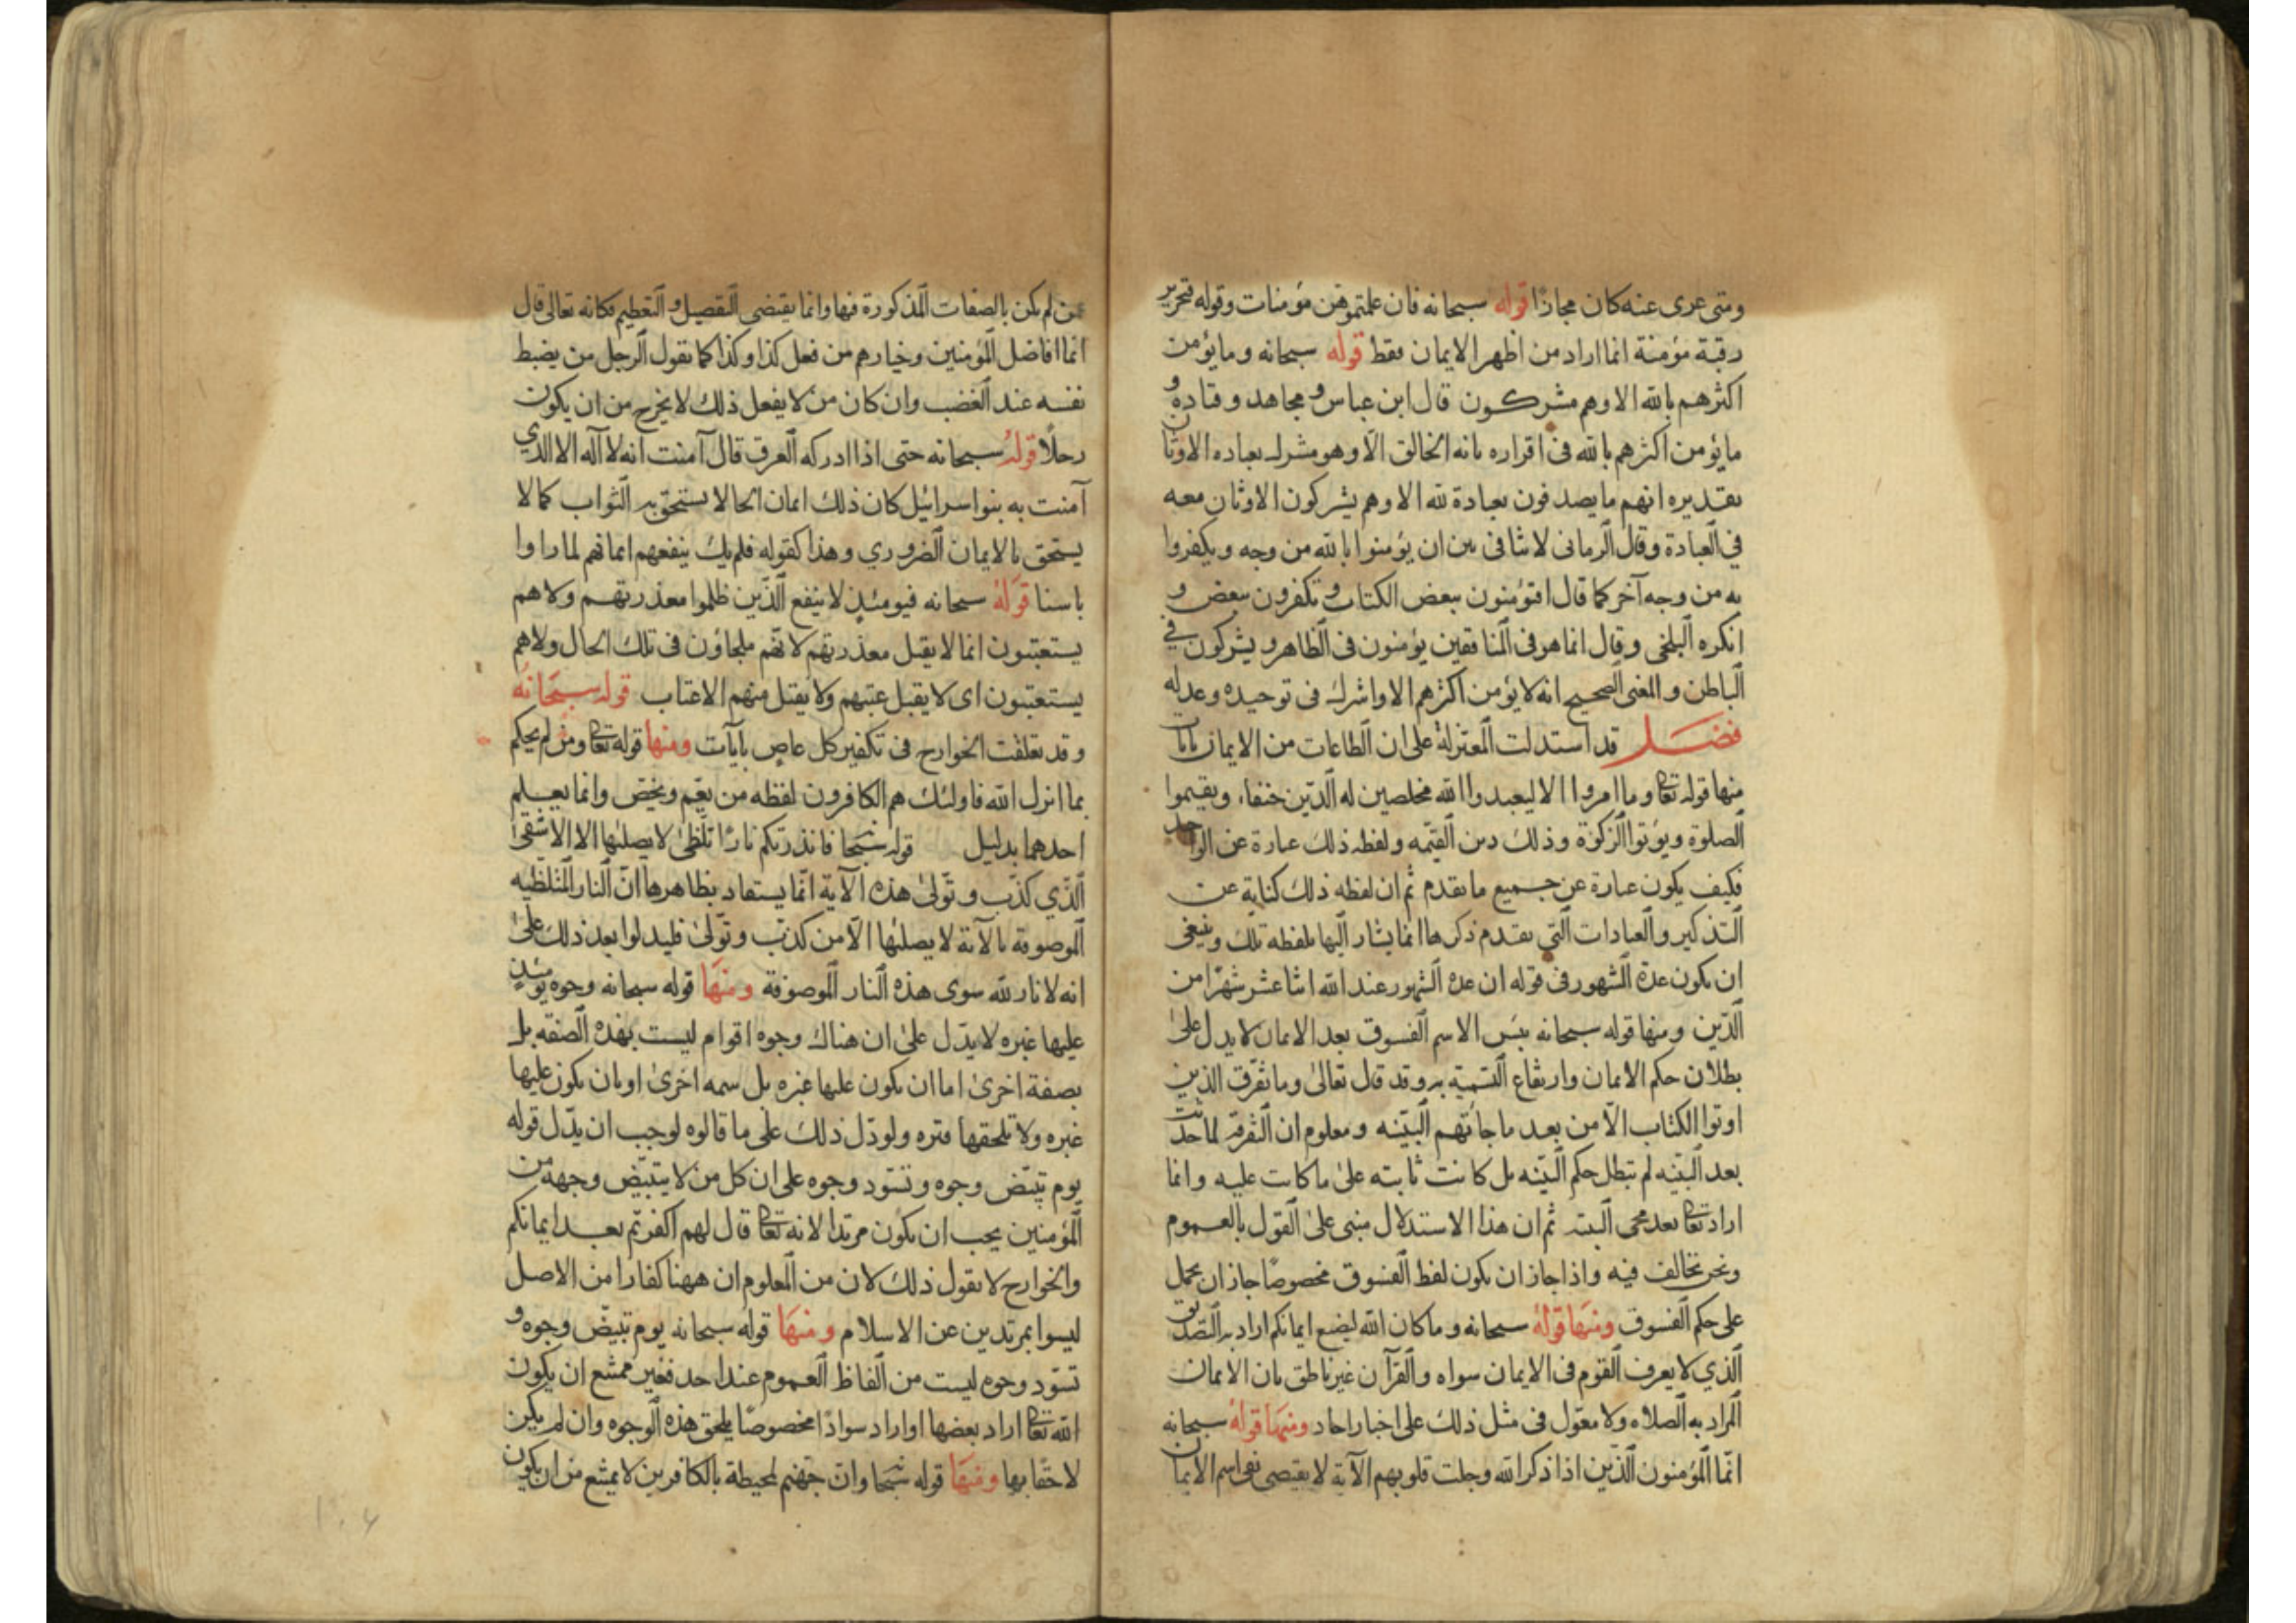 ومتى عرى عنه كان مجازًا قوله سبحانه فان علمتموهن مؤمنات وقوله فتحرير
رقبة مؤمنة انما اراد من اظهر الايمان فقط قوله سبحانه وما يؤمن
اكثرهم بالله الا وهم مشركون قال ابن عباس ومجاهد وقتادة و
ما يؤمن اكثرهم بالله فى اقراره بانه الخالق الا وهو مشرك بعباده الاوثان
تقديره انهم ما يصدقون بعبادة لله الا وهم يشركون الاوثان معه
في العبادة وقال الرمانى لا تنافى بين ان يؤمنوا بالله من وجه ويكفروا
به من وجه آخر كما قال افتؤمنون ببعض الكتاب وتكفرون ببعض و
انكره البلخى وقال انما هو فى المنافقين يؤمنون فى الظاهر ويشركون في
الباطن والمعنى الصحيح انه لا يؤمن اكثرهم الا واشرك فى توحيده وعدله
فصل قد استدلت المعتزلة على ان الطاعات من الايمان بايات
منها قوله تعا وما امروا الا ليعبدوا الله مخلصين له الدين حنفاء ويقيموا
الصلوة ويؤتوا الزكوة وذلك دين القيمه ولفظه ذلك عبارة عن الواحد
فكيف يكون عبارة عن جميع ما تقدم ثم ان لفظه ذلك كناية عن
التذكير والعبادات التي تقدم ذكرها انما يشار اليها بلفظه تلك وينبغى
ان يكون عدة الشهور فى قوله ان عده الشهور عند الله اثنا عشر شهرًا من
الدين ومنها قوله سبحانه بئس الاسم الفسوق بعد الايمان لا يدل على
بطلان حكم الايمان وارتفاع التسمية به وقد قال تعالى وما تفرق الذين
اوتوا الكتاب الا من بعد ما جاتهم البينه ومعلوم ان التفرقه لما حدثت
بعد البينه لم تبطل حكم البينه بل كانت ثابته على ما كانت عليه وانما
اراد تعا بعد مجى البينه ثم ان هذا الاستدلال مبنى على القول بالعموم
ونحن نخالف فيه واذا جاز ان يكون لفظ الفسوق مخصوصًا جاز ان يحمل
على حكم الفسوق ومنها قوله سبحانه وما كان الله ليضيع ايمانكم اراد به التصديق
الذي لا يعرف القوم فى الايمان سواه والقرآن غير ناطق بان الايمان
المراد به الصلاه ولا معول فى مثل ذلك على اخبار احاد ومنها قوله سبحانه
انما المؤمنون الذين اذا ذكر الله وجلت قلوبهم الآية لا يقتضى نفى اسم الايمان
عن لم يكن بالصفات المذكورة فيها وانما يقتضى التفضيل والتعظيم فكانه تعالى قال
انما افاضل المؤمنين وخيارهم من فعل كذا وكذا كما تقول الرجل من يضبط
نفسه عند الغضب وان كان من لا يفعل ذلك لا يخرج من ان يكون
رجلًا قوله سبحانه حتى اذا ادركه الغرق قال آمنت انه لا اله الا الذي
آمنت به بنوا سرائيل كان ذلك ايمان الجا لا يستحق به الثواب كما لا
يستحق بالايمان الضروري وهذا كقوله فلم يك ينفعهم ايمانهم لما راوا
باسنا قوله سبحانه فيومئذ لا ينفع الذين ظلموا معذرتهم ولا هم
يستعتبون انما لا يقبل معذرتهم لانهم ملجاؤن فى تلك الحال ولا هم
يستعتبون اى لا يقبل عتبهم ولا يقتل منهم الاعتاب قوله سبحانه
وقد تعلقت الخوارج فى تكفير كل عاص بآيات ومنها قوله تعا ومن لم يحكم
بما انزل الله فاولئك هم الكافرون لفظه من يعم ويخص وانما يعلم
احدهما بدليل قوله سبحا فانذرتكم نارًا تلظى لا يصليها الا الاشقى
الذي كذب وتولى هذه الآية انما يستفاد بظاهرها ان النار المتلظيه
الموصوفه بالآية لا يصليها الا من كذب وتولى فليدلوا بعد ذلك على
انه لا نار لله سوى هذه النار الموصوفة ومنها قوله سبحانه وجوه يومئذ
عليها غبره لا يدل على ان هناك وجوه اقوام ليست بهذه الصفه بل
بصفة اخرى اما ان يكون عليها غبره بل سمه اخرى او بان يكون عليها
غبره ولا تلحقها قتره ولو دل ذلك على ما قالوه لوجب ان يدل قوله
يوم تبيض وجوه وتسود وجوه على ان كل من لا يتبيض وجهه من
المؤمنين يجب ان يكون مرتدا لانه تعا قال لهم اكفرتم بعد ايمانكم
والخوارج لا يقول ذلك لان من المعلوم ان ههنا كفارا من الاصل
ليسوا بمرتدين عن الاسلام ومنها قوله سبحانه يوم تبيض وجوه و
تسود وجوه ليست من الفاظ العموم عند احد فغير ممتنع ان يكون
الله تعا اراد بعضها او اراد سوادًا مخصوصًا يلحق هذه الوجوه وان لم يكن
لاحقًا بها ومنها قوله سبحا وان جهنم لمحيطة بالكافرين لا يمتنع من ان يكون